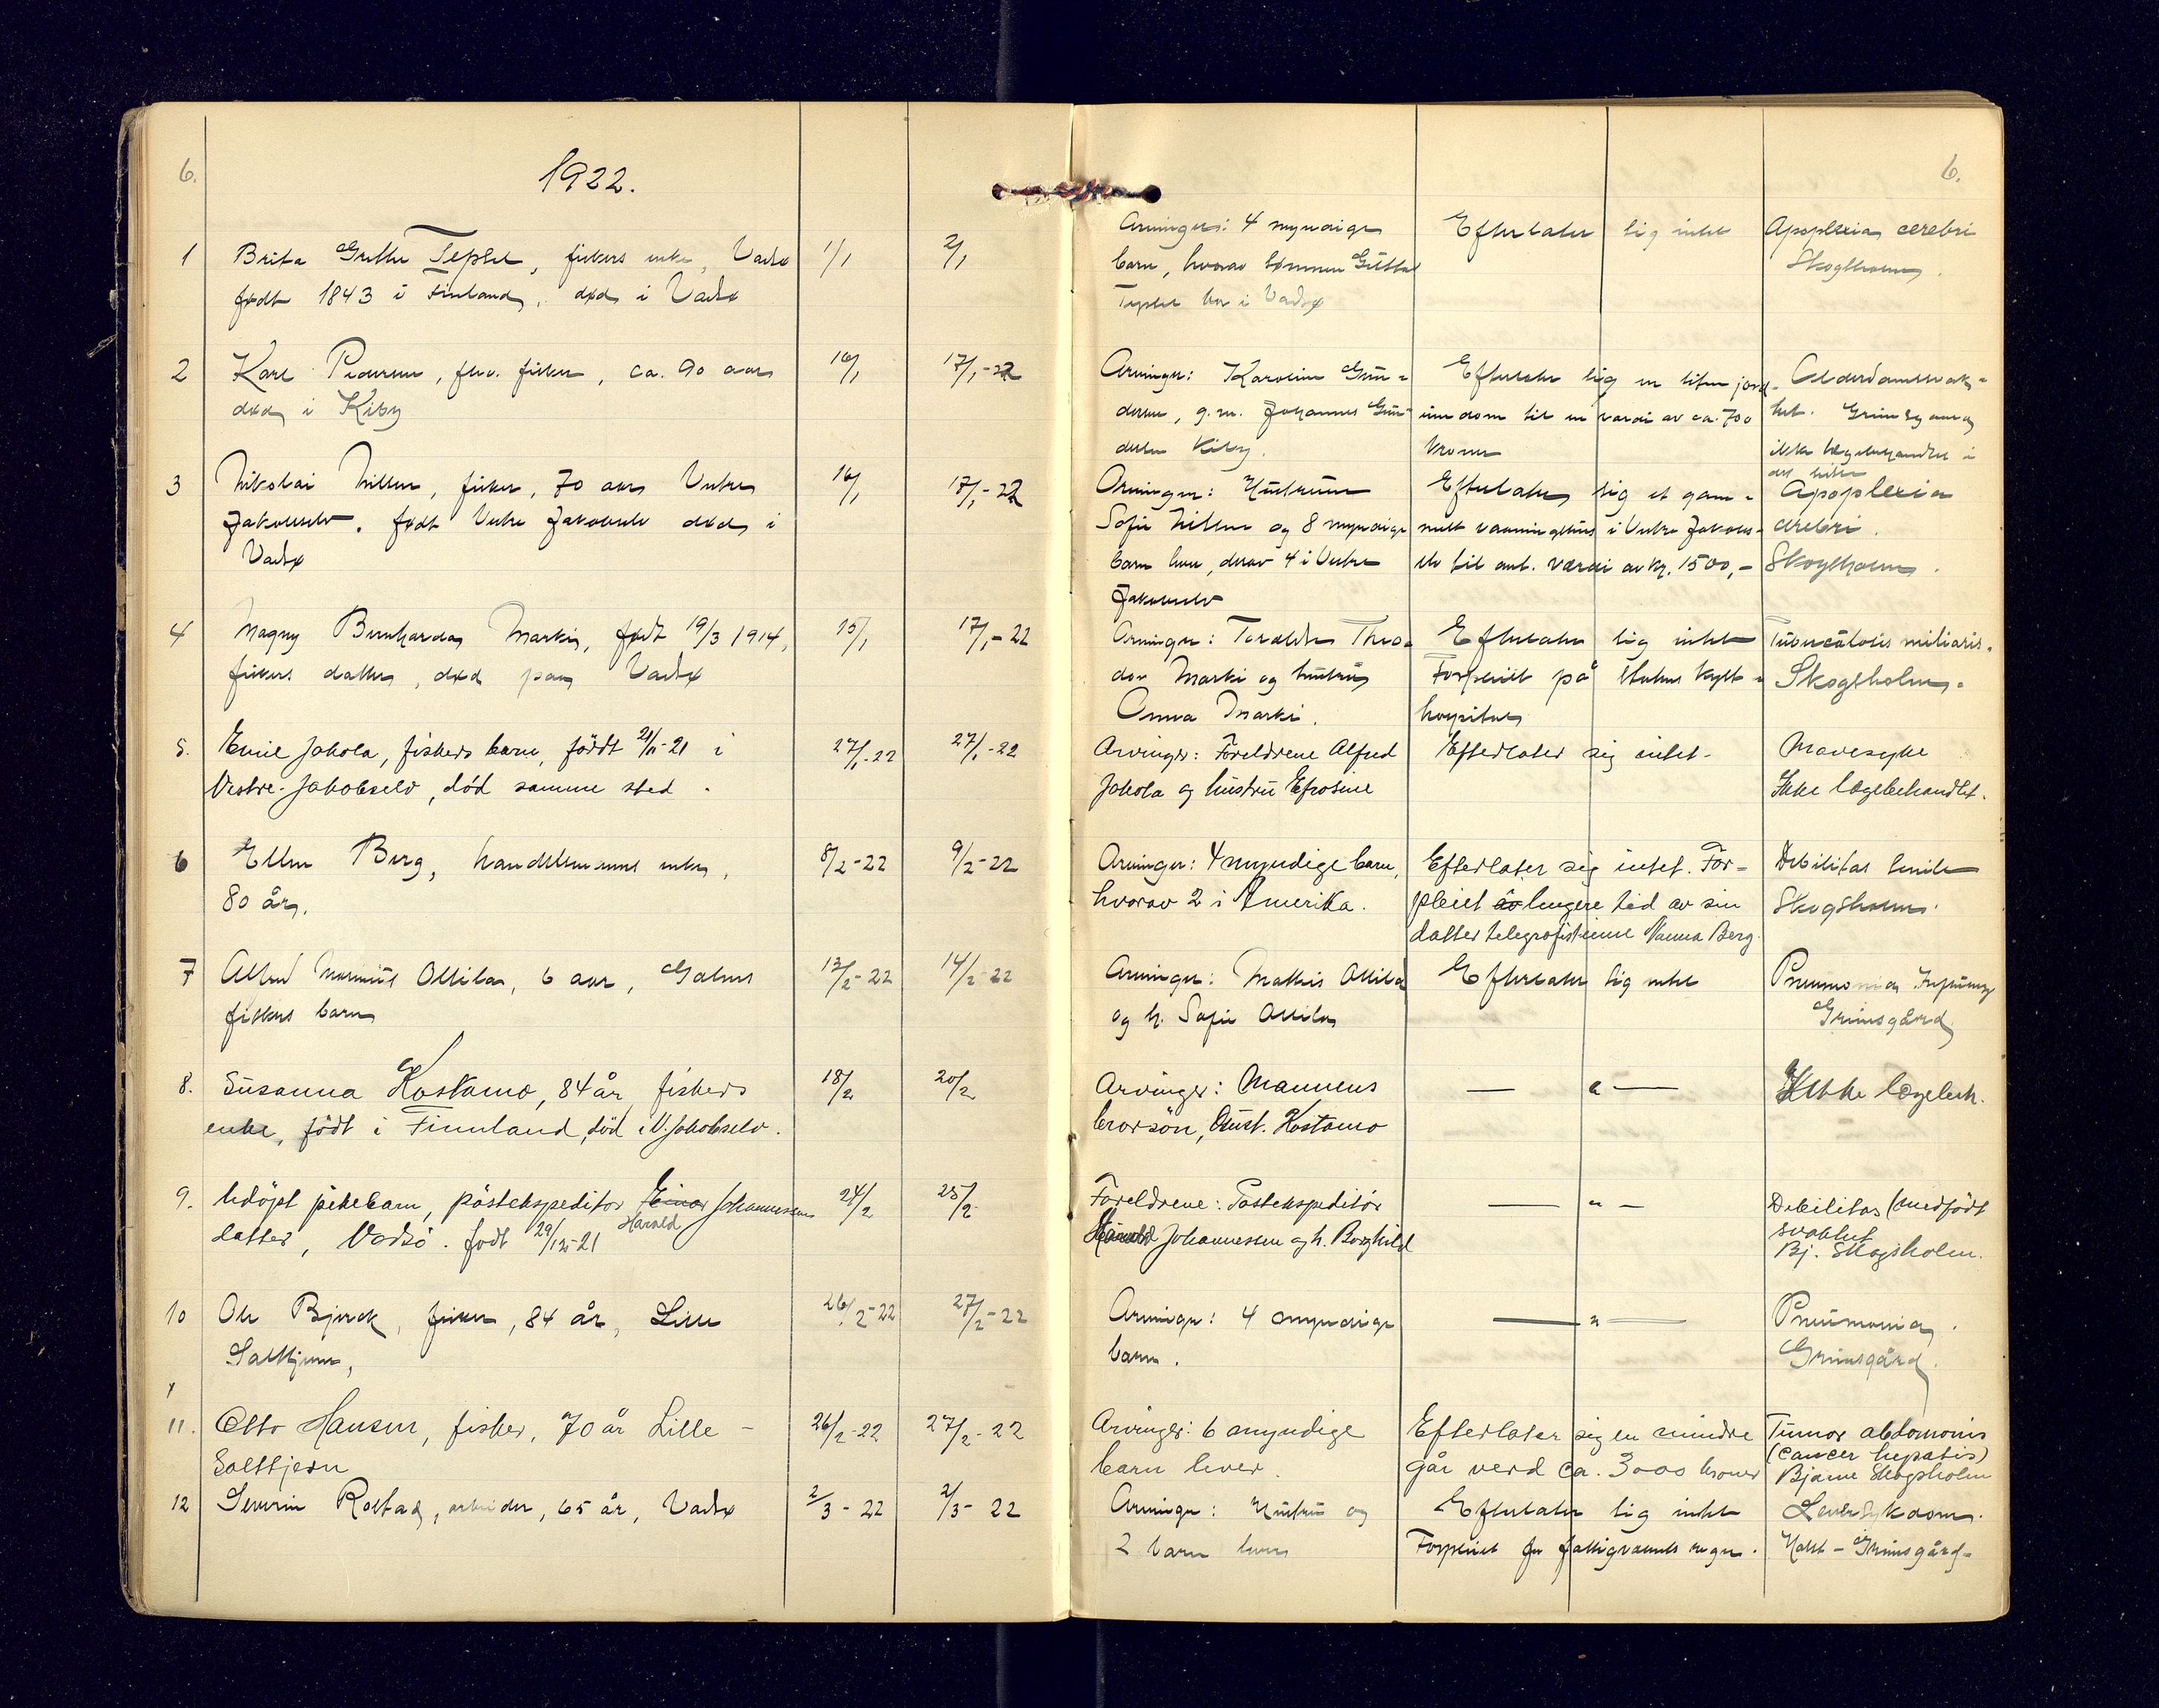 6.
1922.
6.
1 Brita Grethe Tepsel, fiskers enke, Vadsø 1/1 2/1 Arvinger: 4 myndige Efterlater sig intet Apoplexia cerebri
født 1843 i Finland, død i Vadsø barn, hvorav sønnen Skogsholm.
Tepsel bor i Vadsø
2 Karl Pedersen, fhv. fisker, ca. 90 aar 16/1 17/1-22 Arvinger: Karoline Gun- Efterlater sig en liten jord- Alderdomssvak-
død i Kiby dersen, g.m. Johannes Gun- eiendom til en værdi av ca. 700 het. Grimsgaard
dersen Kiby. kroner ikke lægebehandlet i
det siste
3 Nikolai Nilsen, fisker, 70 aar Vestre 16/1 17/1-22 Arvinger: Hustruen Efterlater sig et gam- Apoplexia
Jakobselv. født Vestre Jakobselv død i Sofie Nilsen og 8 myndige melt vaaningshus i Vestre Jakobs- cerebri.
Vadsø barn lever, derav 4 i Vestre elv til ant. værdi av kr. 1500,- Skogholm.
Jakobselv
4 Magny Bernharda Marki, født 19/3 1914, 15/1 17/1-22 Arvinger: Forældre Theo- Efterlater sig intet Tuberculosis miliaris.
fiskers datter, død paa Vadsø dor Marki og hustru Forpleiet på statens kyst- Skogsholm.
Anna Marki. hospital
5. Emil Jakola, fiskers barn, født 21/11-21 i 27/1-22 27/1-22 Arvinger: Foreldrene Alfred Efterlater sig intet- Mavesyke
Vestre-Jakobselv, død samme sted. Jakola og hustru Efrosine Ikke lægebehandlet.
6 Ellen Berg, handelsmanns enke, 8/2-22 9/2-22 Arvinger: 4 myndige barn, Efterlater sig intet. For- Debilitas senile
80 år. hvorav 2 i Amerika. pleiet av lengere tid av sin Skogsholm.
datter telegrafistinne Nanna Berg.
7 Alfred Ollila, 6 aar, Golnes 12/2-22 14/2-22 Arvinger: Mathis Ollila Efterlater sig intet Pneumonia
fiskers barn og h. Sofie Ollila Grimsgård
8. Susanna Kostamo, 84 år fiskers 18/2 20/2 Arvinger: Mannens — " — Ikke lægebeh.
enke, født i Finnland, død i V. Jakobselv. brorsøn, Aust. Kostamo
9. Udöpt pikebarn, postekspeditør Einar Johannessens 24/2 25/2 Foreldrene: Postekspeditør — " — Debilitas (medfödt
Harald
datter, Vadsö. født 29/12-21 Harald Johannessen og h. Borghild svakhet
Bj. Skogsholm.
10 Ole Bjerck, fisker, 84 år, Lille 26/2-22 27/2-22 Arvinger: 4 myndige — " — Pneumonia.
Saltjern, barn. Grimsgård.
11. Otto Hansen, fisker, 70 år Lille- 26/2-22 27/2-22 Arvinger: 6 myndige Efterlater sig en mindre Tumor abdomonis
Saltjern barn lever. går verd ca. 3000 kroner (cancer hepatis)
Bjarne Skogsholm
12 Severin Rostad, arbeider, 65 år, Vadsø 2/3-22 2/3-22 Arvinger: Hustru og Efterlater sig intet Leversykdom.
2 barn lever Forpleiet for fattigvæsenets regn. Holst - Grimsgård-